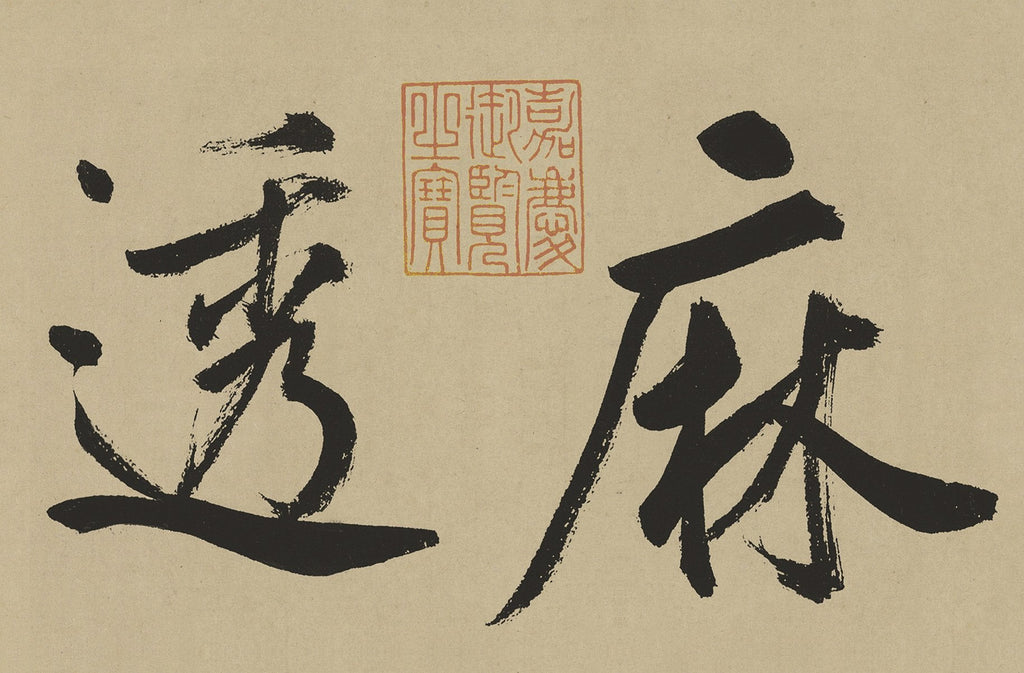 麻透
嘉慶
御覽
之寶